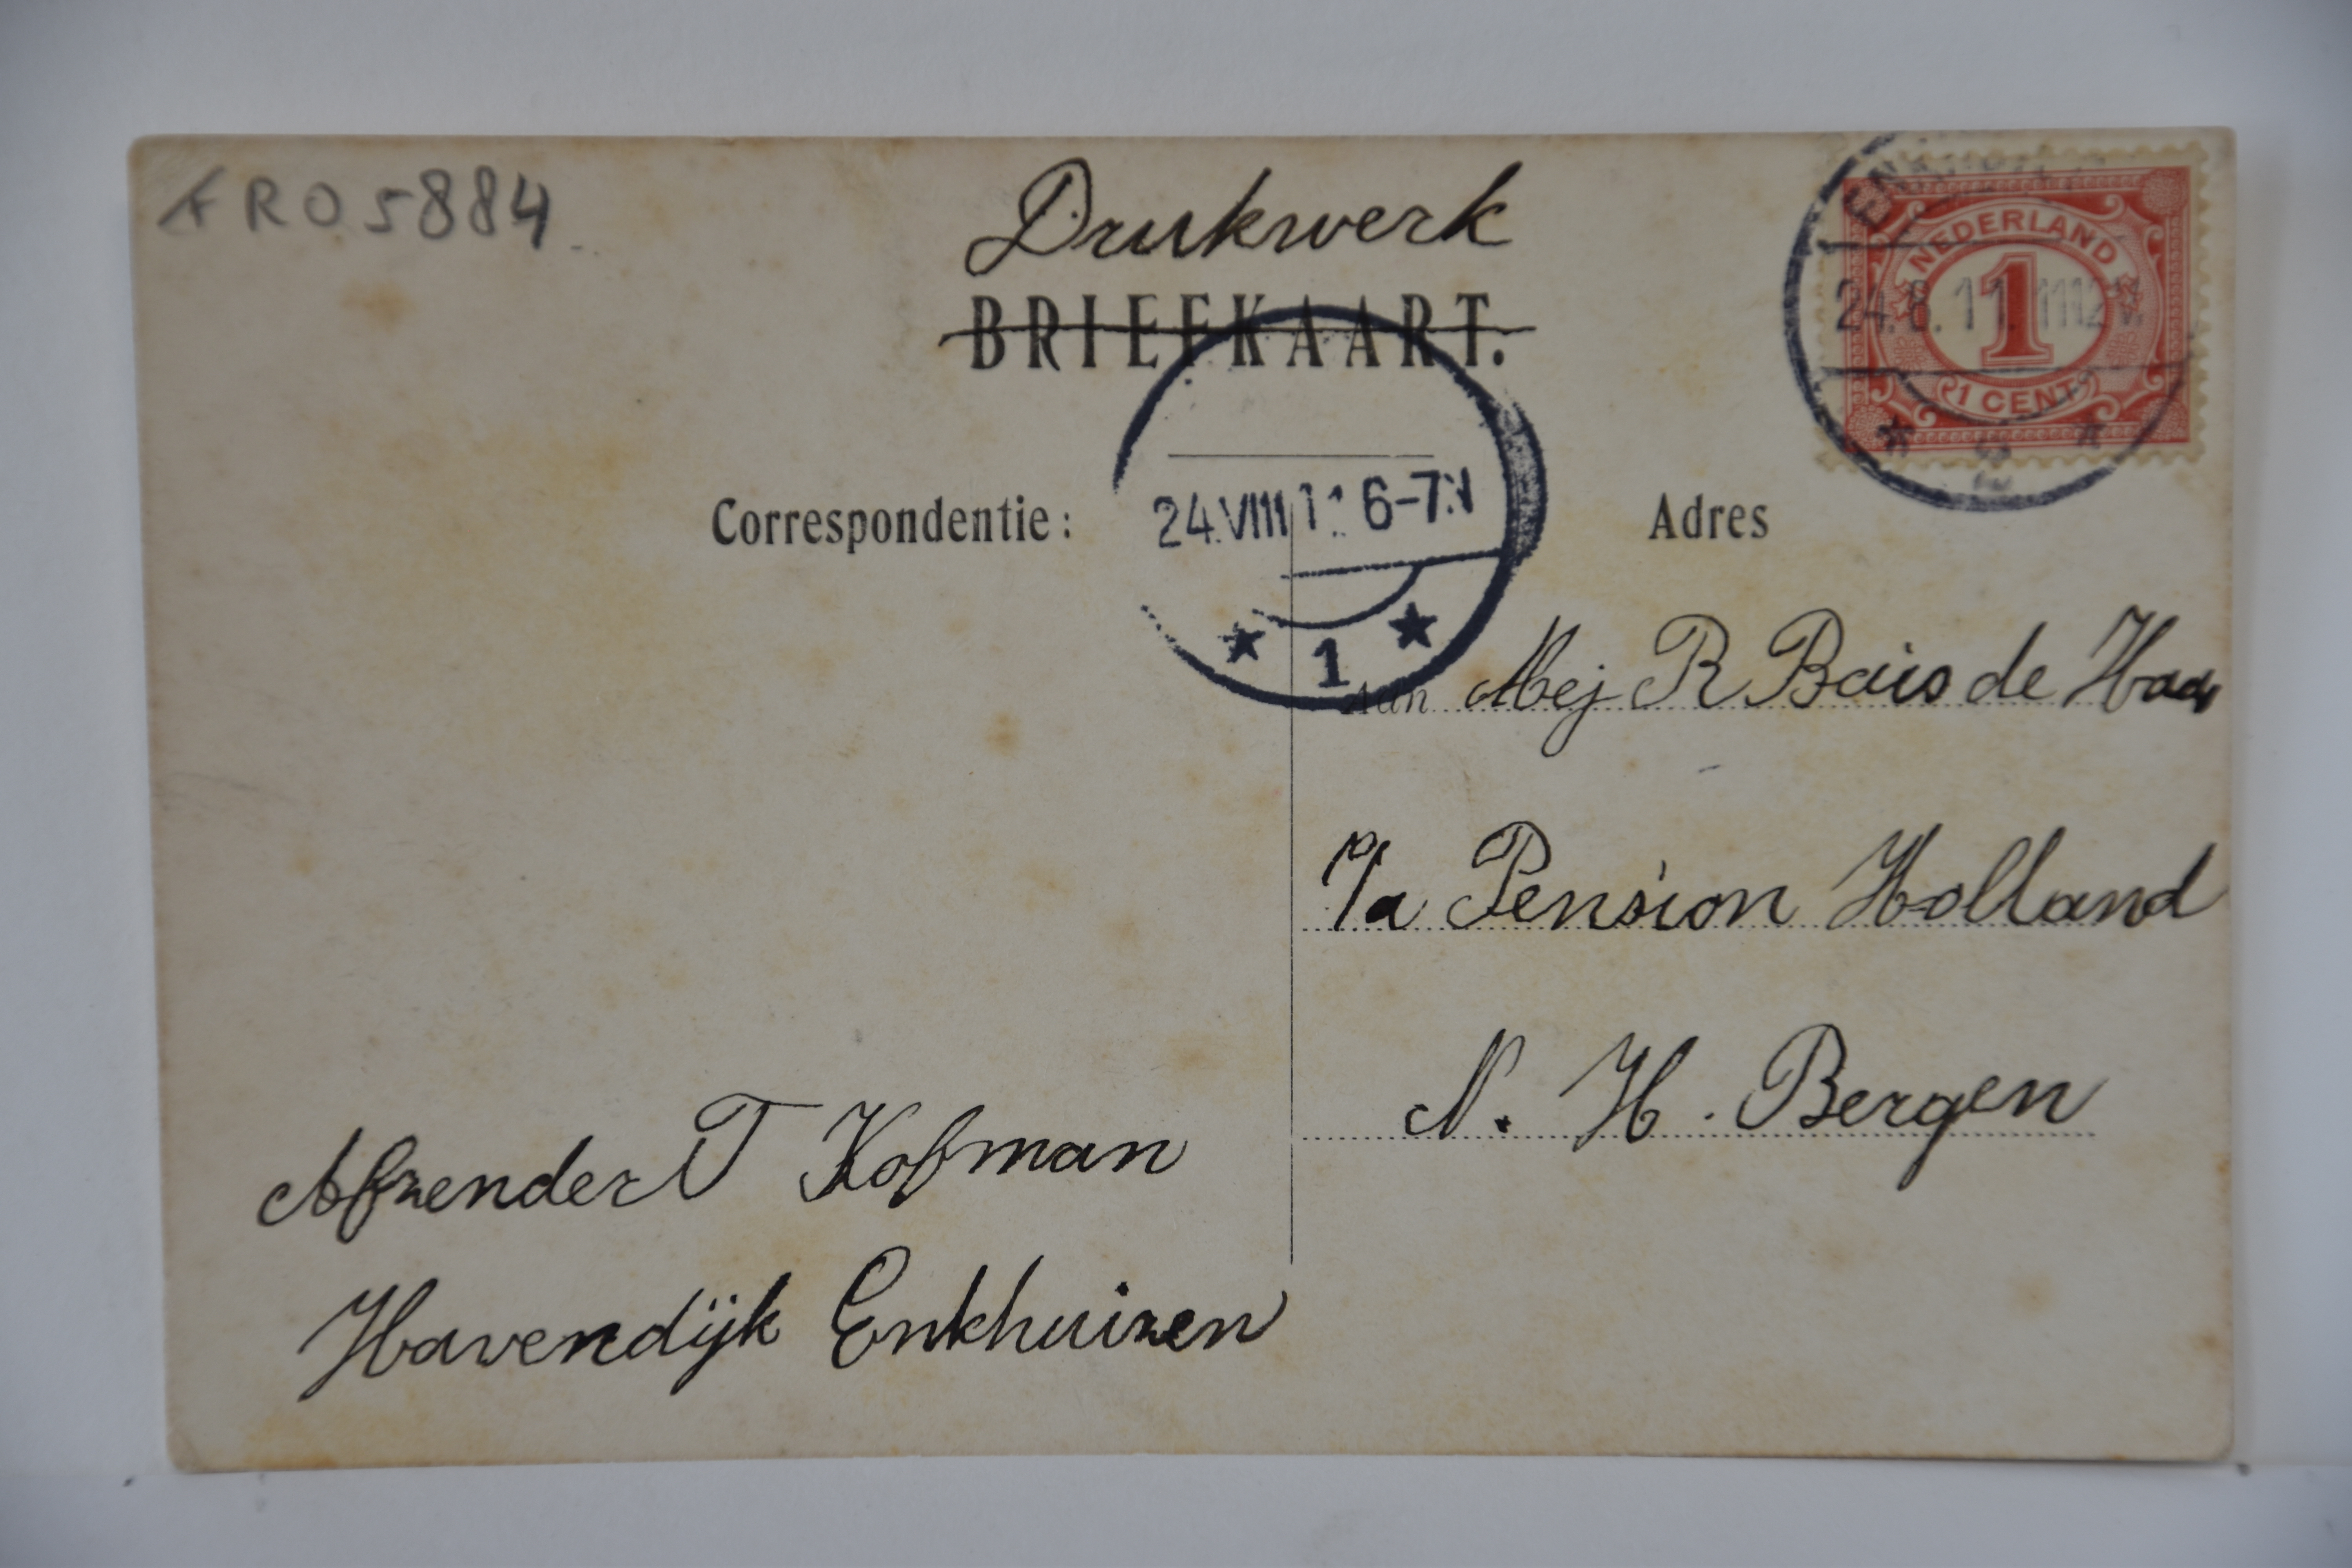 FRO5884
Drukwerk
BRIEFKAART.
ENKHUIZEN
NEDERLAND
24.8.11. 1112V.
1
1 CENT
24.VIII 11 6-7N
1
Correspondentie:
Adres
Aan Mej R Bais de Haas
P/a Pension Holland
N. H. Bergen
Afzender T Kofman
Havendijk Enkhuizen